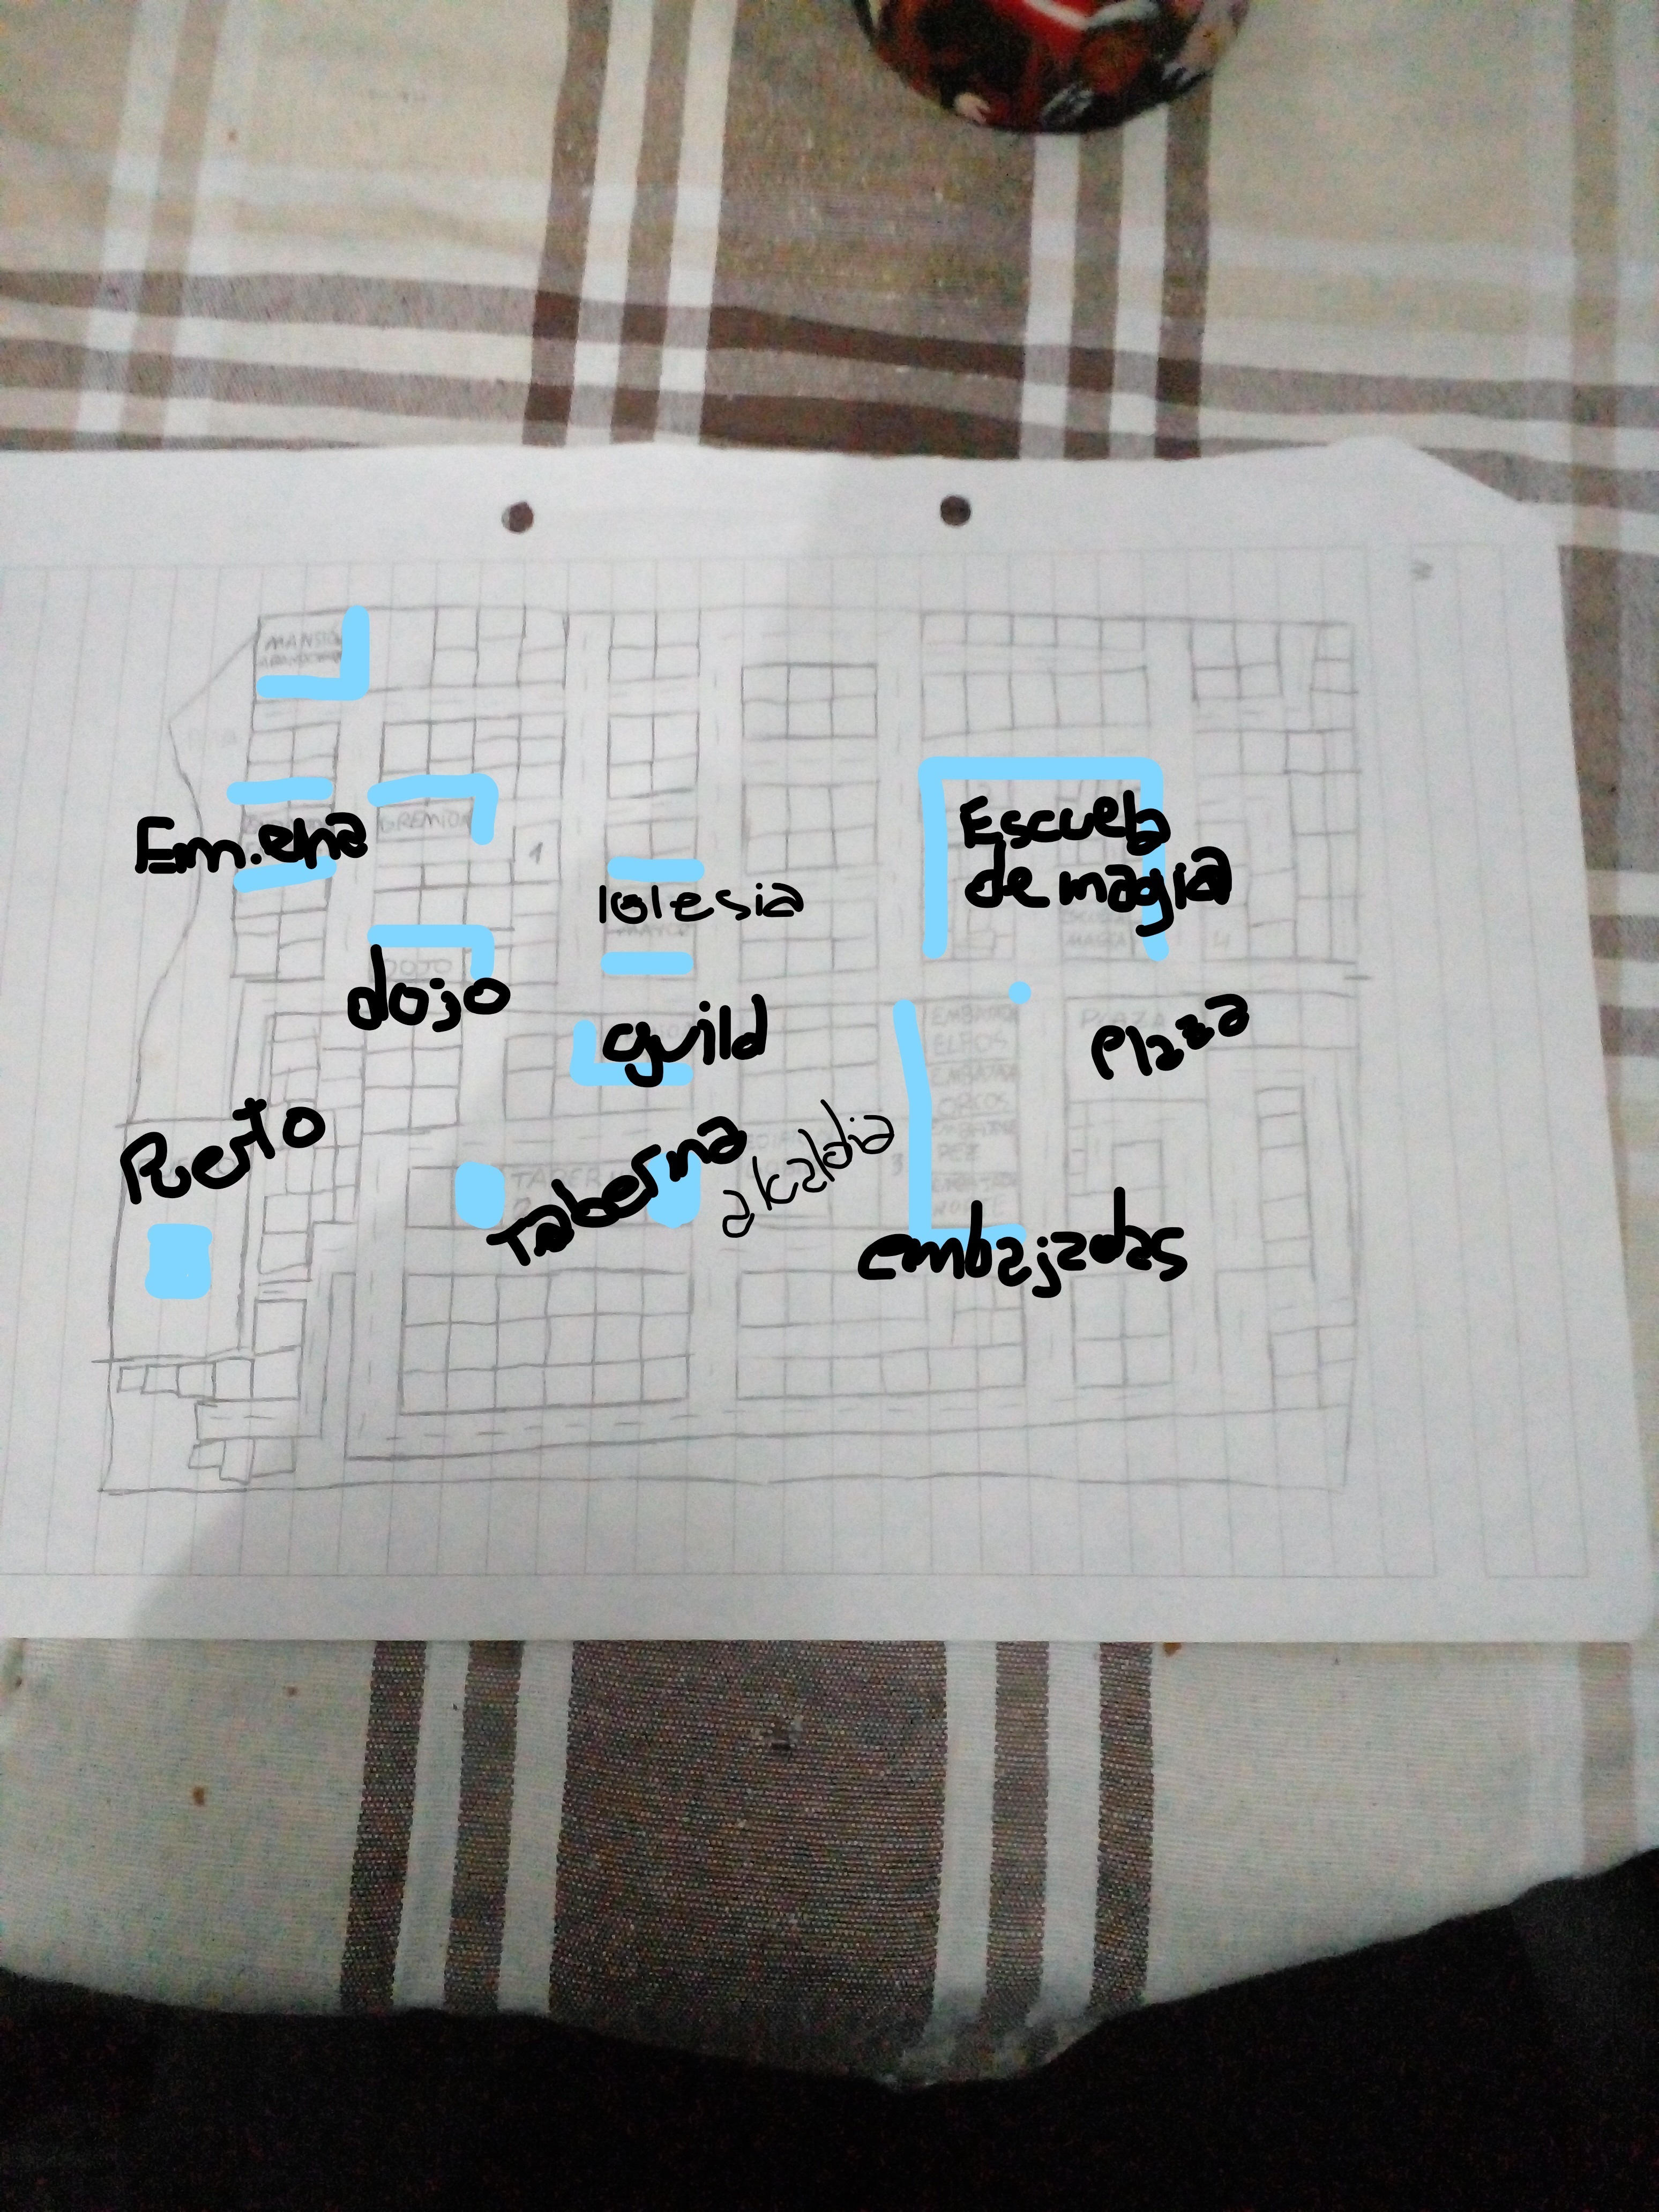 MANSIÓN
Em.ena
GREMIO
1
Iglesia
MAYOR
Escuela
de magia
MAGIA
4
DOJO
dojo
guild
EMBAJADA
ELFOS
EMBAJADA
ORCOS
PEZ
PLAZA
Plaza
Puerto
TABER
2
Taberna
alcaldia
3
embajadas